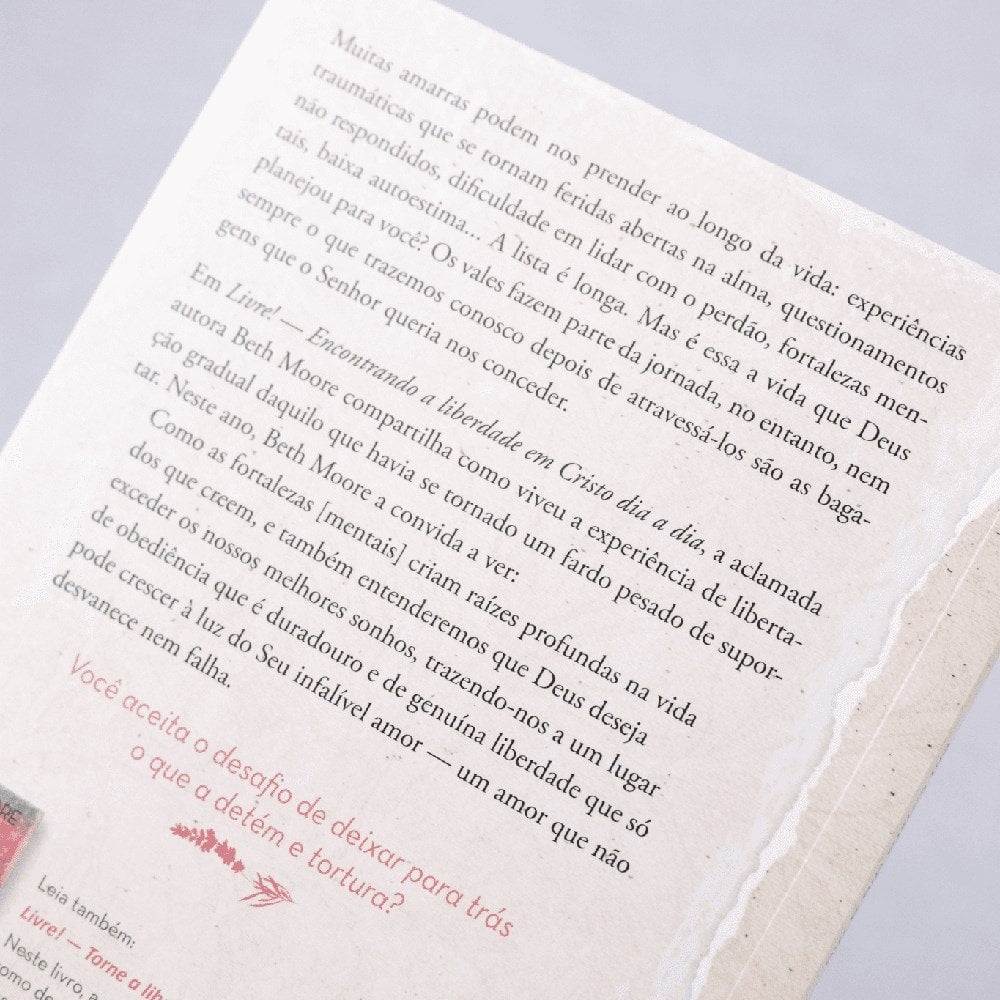 Muitas amarras podem nos prender ao longo da vida: experiências
traumáticas que se tornam feridas abertas na alma, questionamentos
não respondidos, dificuldade em lidar com o perdão, fortalezas men-
tais, baixa autoestima... A lista é longa. Mas é essa a vida que Deus
planejou para você? Os vales fazem parte da jornada, no entanto, nem
sempre o que trazemos conosco depois de atravessá-los são as baga-
gens que o Senhor queria nos conceder.
Em Livre! — Encontrando a liberdade em Cristo dia a dia, a aclamada
autora Beth Moore compartilha como viveu a experiência de liberta-
ção gradual daquilo que havia se tornado um fardo pesado de supor-
tar. Neste ano, Beth Moore a convida a ver:
Como as fortalezas [mentais] criam raízes profundas na vida
dos que creem, e também entenderemos que Deus deseja
exceder os nossos melhores sonhos, trazendo-nos a um lugar
de obediência que é duradouro e de genuína liberdade que só
pode crescer à luz do Seu infalível amor — um amor que não
desvanece nem falha.
Você aceita o desafio de deixar para trás
o que a detém e tortura?
Leia também:
Livre! — Torne a lib
Neste livro, a
omo de